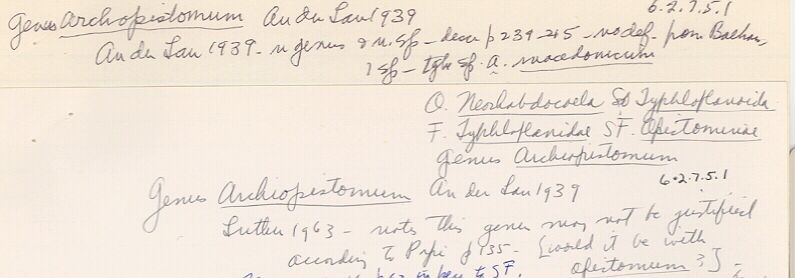 6.2.7.5.1
Genus Archopistomum An der Lan 1939
An der Lan 1939 - n genus & n. sp - desc p 239-245 - no def. from Balkan,
1 sp - type sp. A. macedonicum
O. Neorhabdocoela SO Typhloplanoida
F. Typhloplanidae SF. Opistominae
Genus Archiopistomum
6.2.7.5.1
Genus Archiopistomum An der Lan 1939
Luther 1963 - notes this genus may not be justified
according to Papi p 135 - [would it be with
opistomum?] -
to SF.